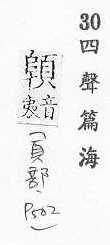 30四聲篇海
音
(頁部, P502)